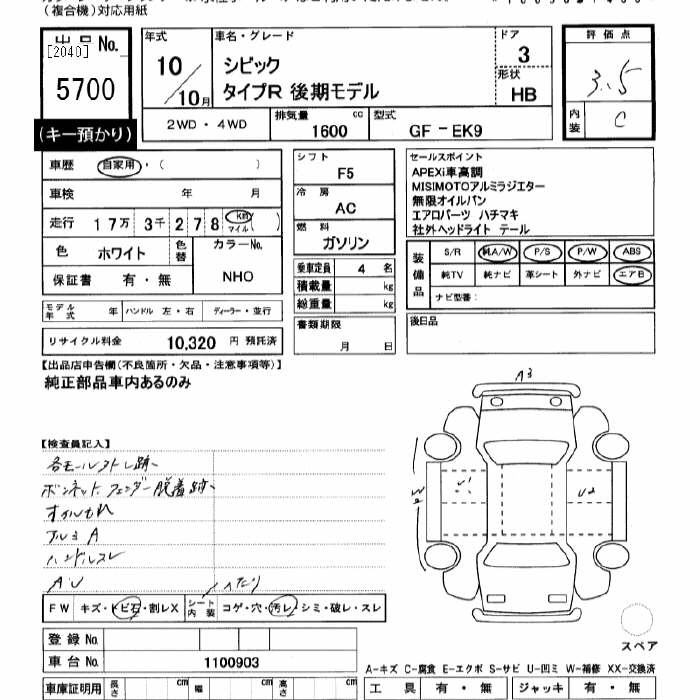 (複合機)対応用紙
出品No.
[2040]
5700
(キー預かり)
年式
10/10月
車名・グレード
シビック
タイプR 後期モデル
ドア
3
形状
HB
2WD・4WD
排気量
1600 cc
型式
GF-EK9
評価点
3.5
内装
C
車歴 自家用・( )
車検 年 月
走行 17万 3千 278 km マイル ( )
色 ホワイト
色替
カラーNo.
NH0
保証書 有・無
モデル年式 年 ハンドル 左・右 ディーラー・並行
リサイクル料金 10,320 円 預託済
シフト
F5
冷房
AC
燃料
ガソリン
乗車定員 4 名
積載量 kg
総重量 kg
書類期限
月 日
セールスポイント
APEXi車高調
MISIMOTOアルミラジエター
無限オイルパン
エアロパーツ ハチマキ
社外ヘッドライト テール
装備品
S/R 純A/W P/S P/W ABS
純TV 純ナビ 革シート 外ナビ エアB
ナビ型番:
後日品
【出品店申告欄(不良箇所・欠品・注意事項等)】
純正部品車内あるのみ
【検査員記入】
各モールストレ跡
ボンネット フェンダー脱着跡
オイルもれ
アルミ A
ハンドルスレ
AU
ヘたり
FW キズ・トビ石・割レX
シート内装 コゲ・穴・汚レ・シミ・破レ・スレ
登録No.
車台No. 1100903
車庫証明用 長さ cm 幅 cm 高さ cm
A3
W2
U1
U2
スペア
A-キズ C-腐食 E-エクボ S-サビ U-凹ミ W-補修 XX-交換済
工具 有・無 ジャッキ 有・無